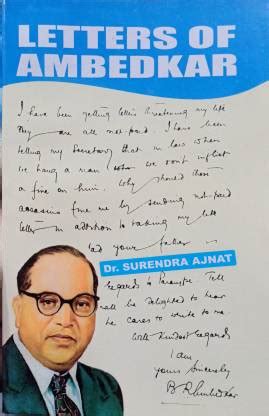 LETTERS OF
AMBEDKAR
I have been getting letters threatening my life
They are all not-paid. I have been
telling my Secretary that in law when
we hang a man we don't inflict
a fine on him. Why should these
assassins fine me by sending not-paid
letters in addition to taking my life
your father is
Dr. SURENDRA AJNAT
regards to Tell
shall be delighted to hear
he cares to write to me.
With Kindest regards
I am
yours sincerely
B R Ambedkar